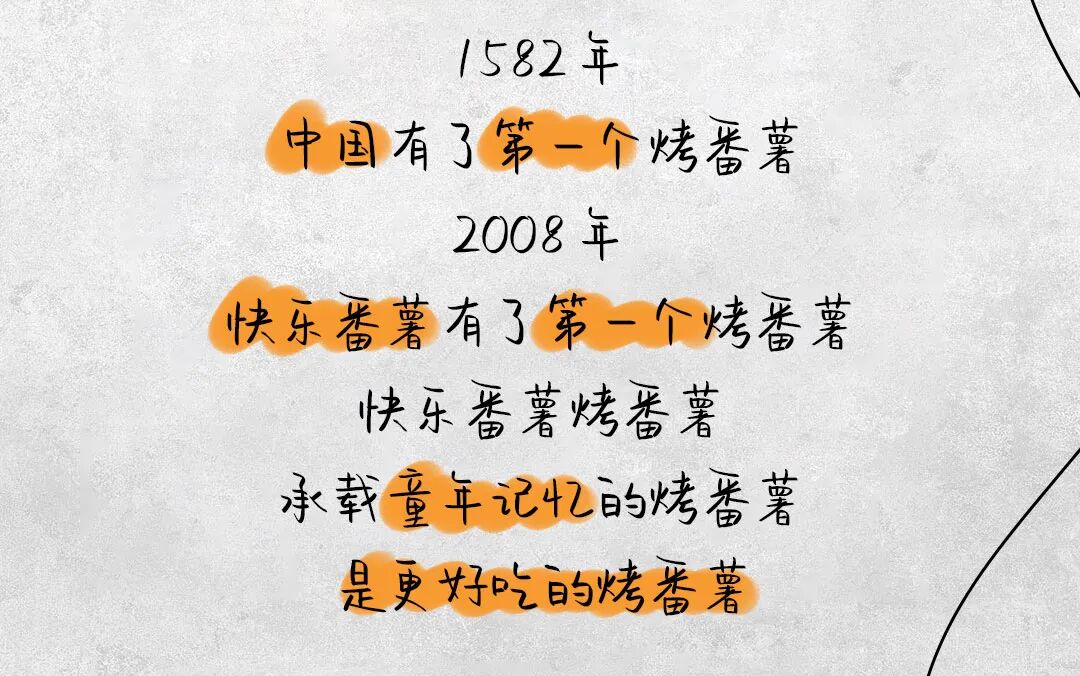 1582年
中国有了第一个烤番薯
2008年
快乐番薯有了第一个烤番薯
快乐番薯烤番薯
承载童年记忆的烤番薯
是更好吃的烤番薯